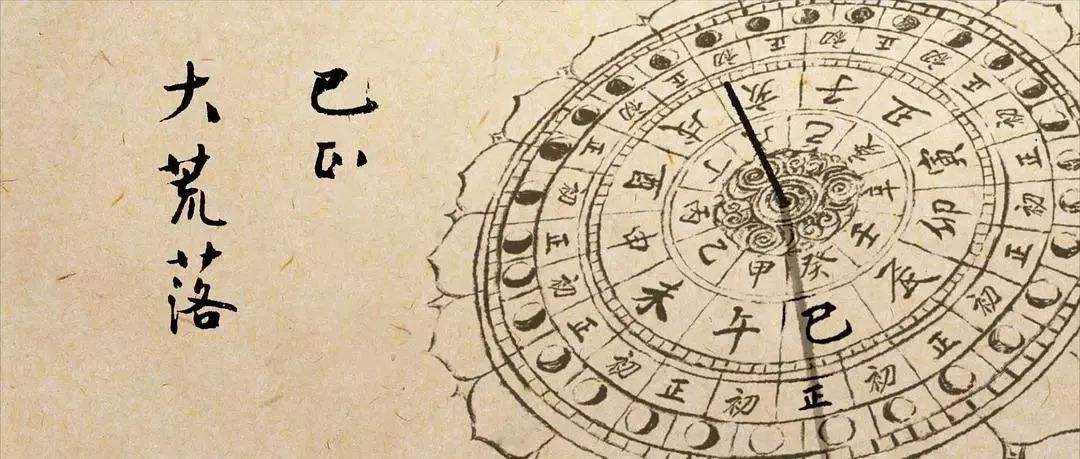 巳正
大荒落
子丑寅卯辰巳午未申酉戌亥
初正初正初正初正初正初正初正初正初正初正初正初正
甲乙丙丁己辛壬癸